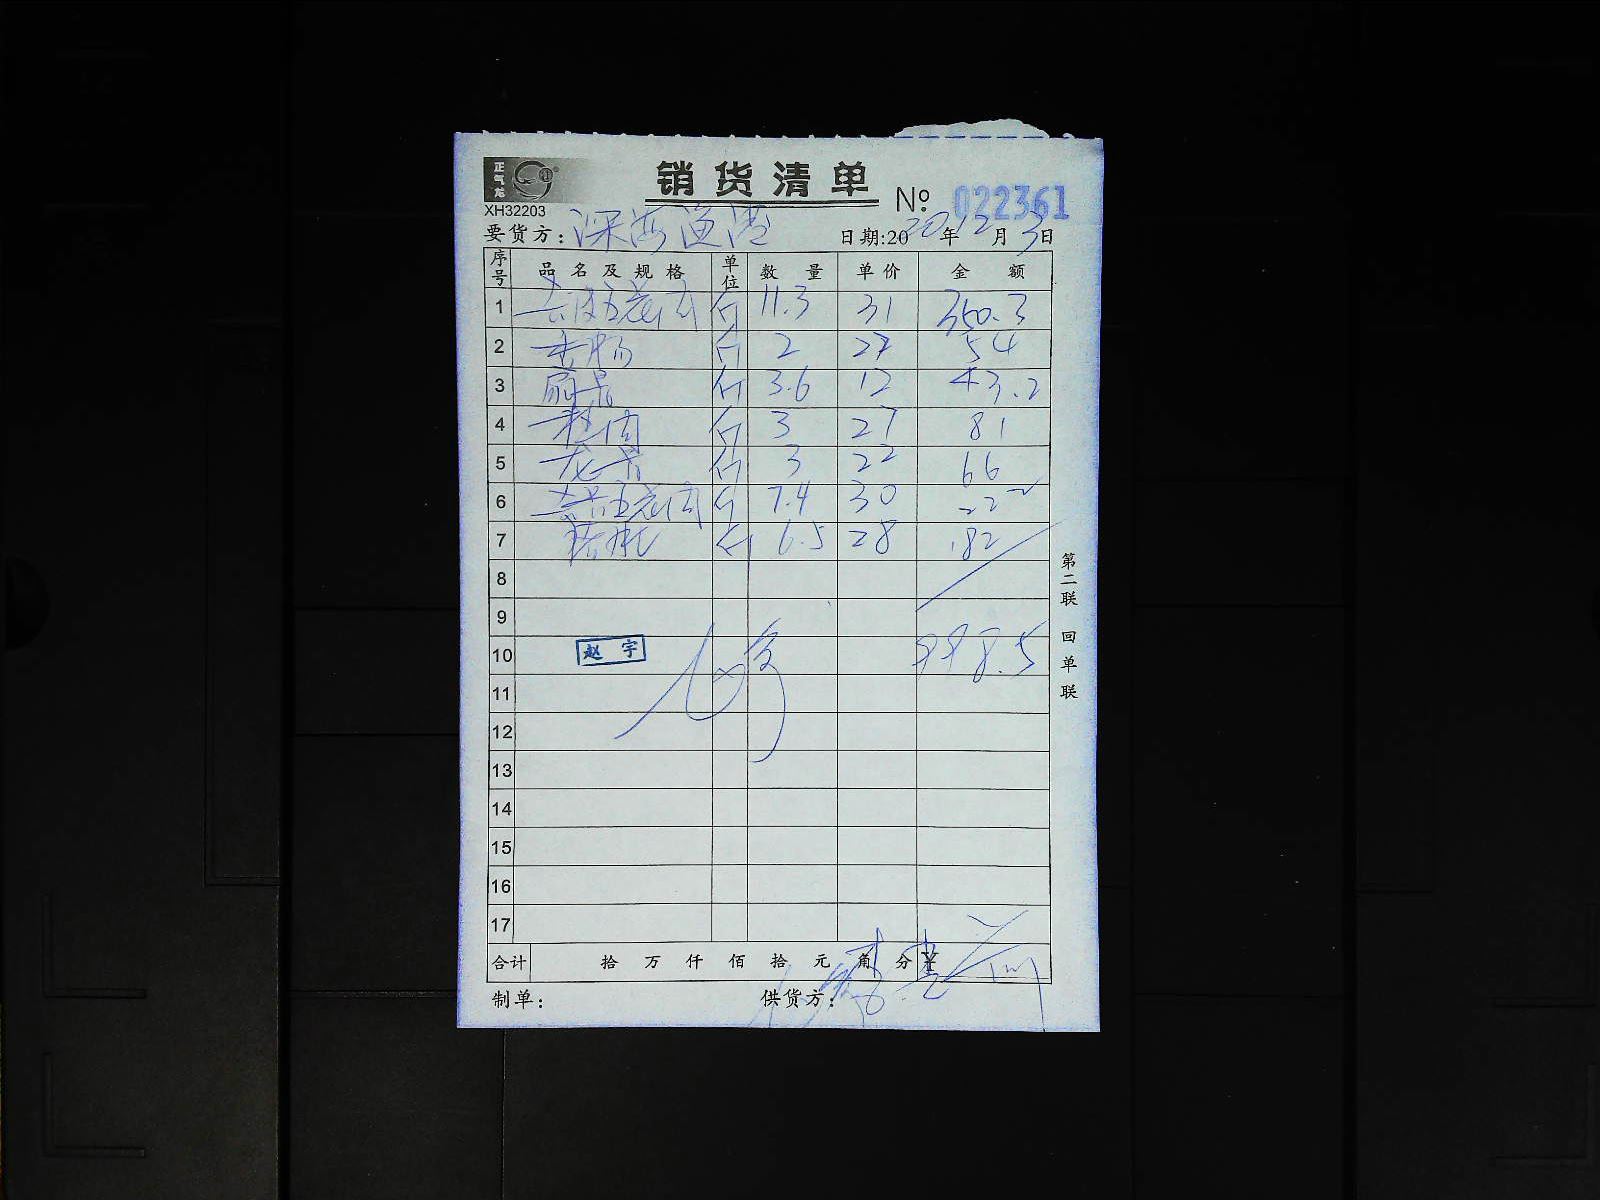 正气龙
销货清单
XH32203
№ 022361
要货方：深海渔湾
日期:2020年12月3日
序号 品名及规格 单位 数量 单价 金额
1 去皮五花肉 斤 11.3 31 350.3
2 斤 2 27 54
3 扇骨 斤 3.6 12 43.2
4 斤 3 27 81
5 龙骨 斤 3 22 66
6 五花肉 斤 7.4 30 222
7 斤 6.5 28 182
8
9
10 赵宇 998.5
11
12
13
14
15
16
17
合计 拾万仟佰拾元角分¥
制单： 供货方：
第二联 回单联